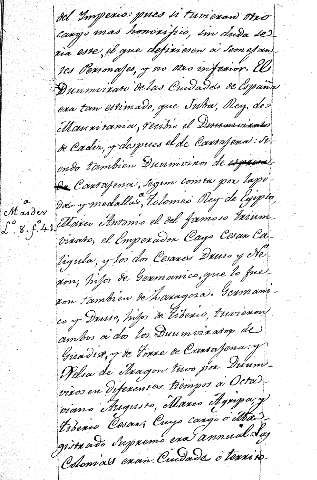 del Imperio: pues si tuvieran otro
cargo mas honorifico, sin duda se
ria este, el que defiriesen à semejan
tes Personajes, y no otro inferior. El
Duumvirato de las Ciudades de España
era tan estimado, que Juba, Rey de
Mauritania, recibiò el Duumvirato
de Cadiz, y despues el de Cartagena: si
endo tambien Duumviros de
Cartagena, segun consta por lapi
das y medallas, Ptolomeo Rey de Egipto,
Marco Antonio el del famoso trium
virato, el Emperador Cayo Cesar Ca
ligula, y los dos Cesares Druso y Ne
ron, hijos de Germanico, que lo fue
ron tambien de Zaragoza. Germani
co y Druso, hijos de Tiberio, tuvieron
ambos a dos los Duumviratos de
Guadix, y de Torre de Cartagena: y
Velia de Aragon tuvo por Duum
viros en diferentes tiempos à Octa
viano Augusto, Marco Agripa, y
Tiberio Cesar; Cuyo cargo ò Ma
gistrado Supremo era annual. Las
Colonias eran Ciudades ò territo
Masdeu
t.º 8. f.º 42